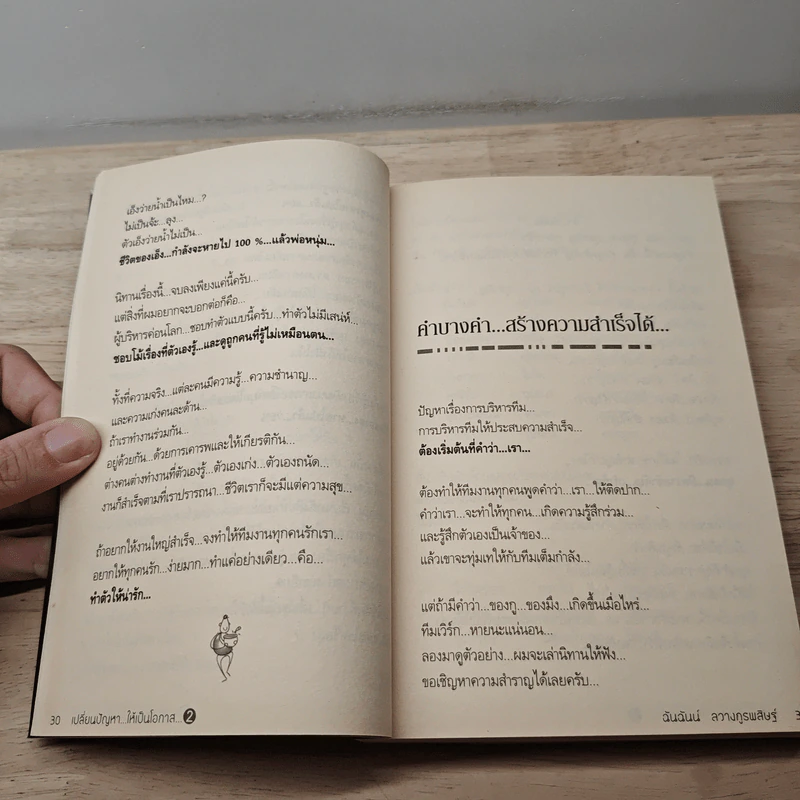 เอ็งว่ายน้ำเป็นไหม...?
ไม่เป็นจ้ะ...ลุง...
ตัวเอ็งว่ายน้ำไม่เป็น...
ชีวิตของเอ็ง...กำลังจะหายไป 100 %...แล้วพ่อหนุ่ม...
นิทานเรื่องนี้...จบลงเพียงแค่นี้ครับ...
แต่สิ่งที่ผมอยากจะบอกต่อก็คือ...
ผู้บริหารค่อนโลก...ชอบทำตัวแบบนี้ครับ...ทำตัวไม่มีเสน่ห์...
ชอบโม้เรื่องที่ตัวเองรู้...และดูถูกคนที่รู้ไม่เหมือนตน...
ทั้งที่ความจริง...แต่ละคนมีความรู้...ความชำนาญ...
และความเก่งคนละด้าน...
ถ้าเราทำงานร่วมกัน...
อยู่ด้วยกัน...ด้วยการเคารพและให้เกียรติกัน...
ต่างคนต่างทำงานที่ตัวเองรู้...ตัวเองเก่ง...ตัวเองถนัด...
งานก็สำเร็จตามที่เราปรารถนา...ชีวิตเราก็จะมีแต่ความสุข...
ถ้าอยากให้งานใหญ่สำเร็จ...จงทำให้ทีมงานทุกคนรักเรา...
อยากให้ทุกคนรัก...ง่ายมาก...ทำแค่อย่างเดียว...คือ...
ทำตัวให้น่ารัก...
30 เปลี่ยนปัญหา...ให้เป็นโอกาส...2
คำบางคำ...สร้างความสำเร็จได้...
ปัญหาเรื่องการบริหารทีม...
การบริหารทีมให้ประสบความสำเร็จ...
ต้องเริ่มต้นที่คำว่า...เรา...
ต้องทำให้ทีมงานทุกคนพูดคำว่า...เรา...ให้ติดปาก...
คำว่าเรา...จะทำให้ทุกคน...เกิดความรู้สึกร่วม...
และรู้สึกตัวเองเป็นเจ้าของ...
แล้วเขาจะทุ่มเทให้กับทีมเต็มกำลัง...
แต่ถ้ามีคำว่า...ของกู...ของมึง...เกิดขึ้นเมื่อไหร่...
ทีมเวิร์ก...หายนะแน่นอน...
ลองมาดูตัวอย่าง...ผมจะเล่านิทานให้ฟัง...
ขอเชิญหาความสำราญได้เลยครับ...
ฉันฉันน์ ลวางกูรพสิษฐ์